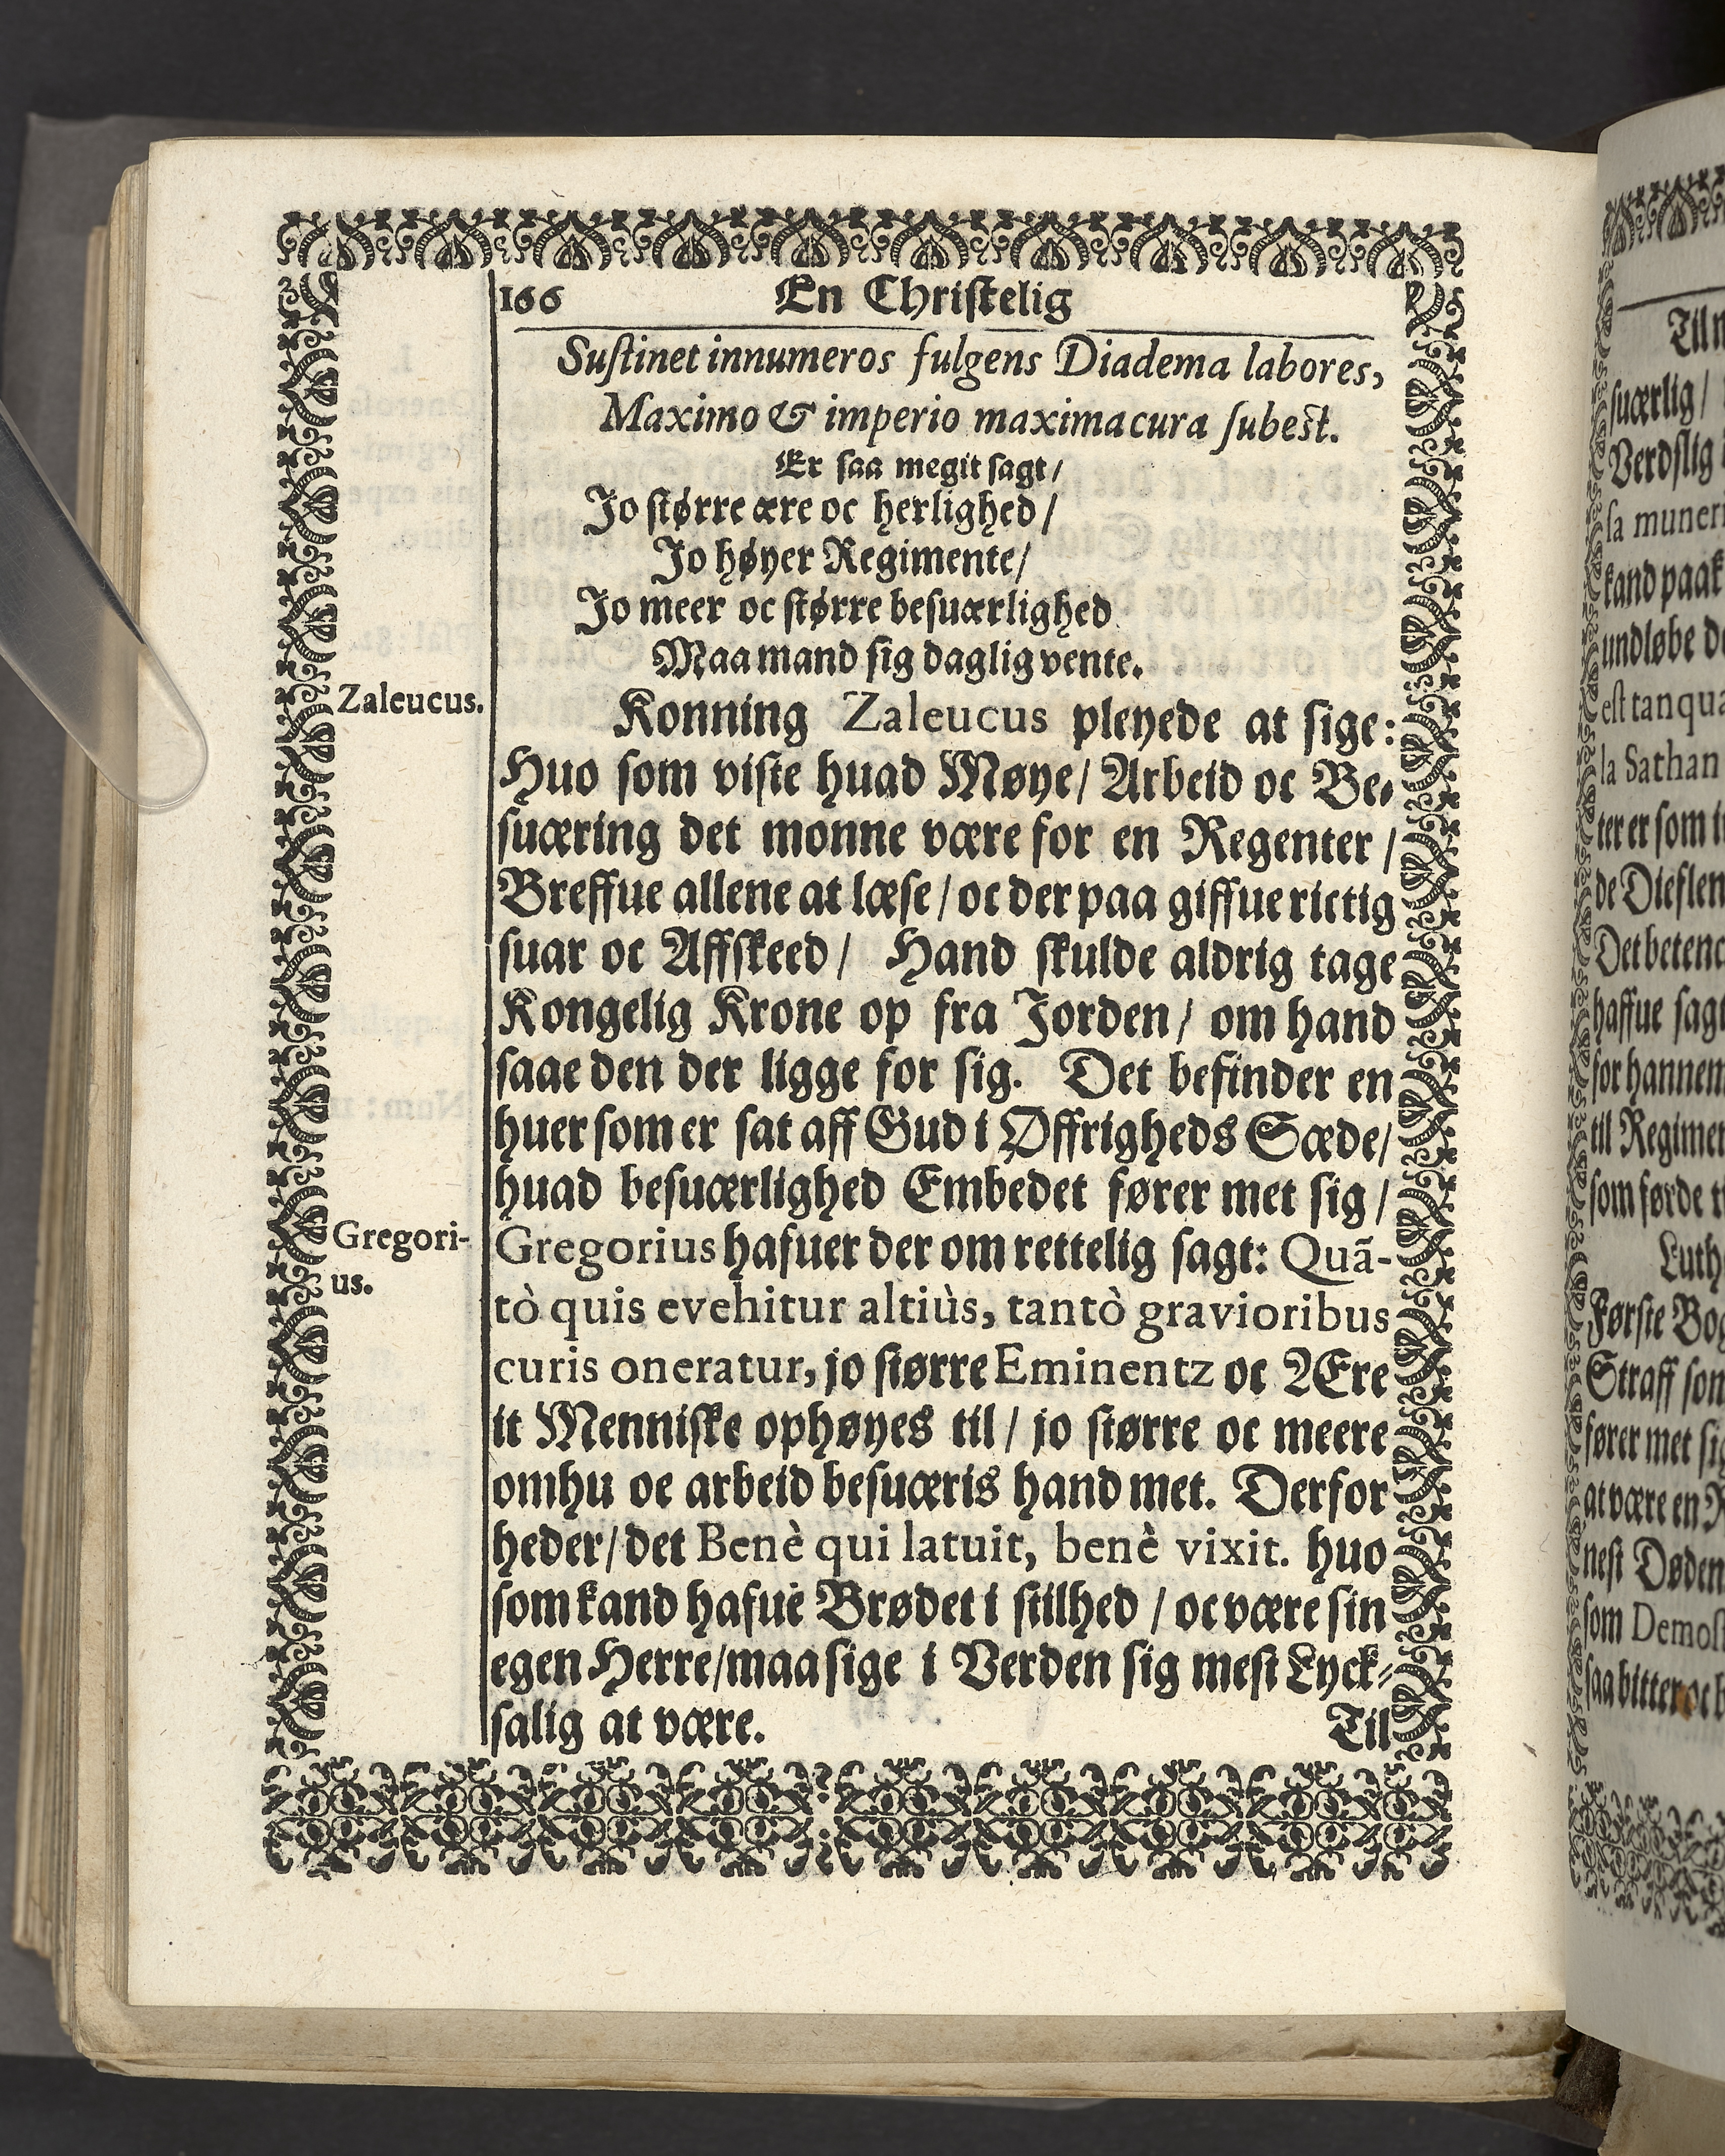 166 En Christelig
Sustinet innumeros fulgens Diadema labores,
Maximo & imperio maxima cura subest.
Er saa megit sagt/
Jo større ære oc herlighed/
Jo høyer Regimente/
Jo meer oc større besuærlighed
Maa mand sig daglig vente.
Zaleucus.
Konning Zaleucus pleyede at sige:
Huo som viste huad Møye/ Arbeid oc Be-
suæring det monne være for en Regenter/
Breffue allene at læse/ oc der paa giffue rictig
suar oc Affskeed/ Hand skulde aldrig tage
Kongelig Krone op fra Jorden/ om hand
saae den der ligge for sig. Det befinder en
huer som er sat aff Gud i Øffrigheds Sæde/
huad besuærlighed Embedet fører met sig/
Gregori-
us.
Gregorius hafuer der om rettelig sagt: Quã-
tò quis evehitur altiùs, tantò gravioribus
curis oneratur, jo større Eminentz oc Ære
it Menniske ophøyes til/ jo større oc meere
omhu oe arbeid besuæris hand met. Derfor
heder/ det Benè qui latuit, benè vixit. huo
som kand hafue Brødet i stilhed/ oc være sin
egen Herre/ maa sige i Verden sig mest Lyck-
salig at være.
Til
suærlig/
Verdslig
sa muner
kand paak
undløbe
est tanqua
la Sathan
ter er som
de Dieflen
Det betenc
haffue sag
for hannem
til Regimen
som førde
Luth
Første Bog
Straff som
fører met sig
at være en
nest Døden
som Demos
saa bitter oc